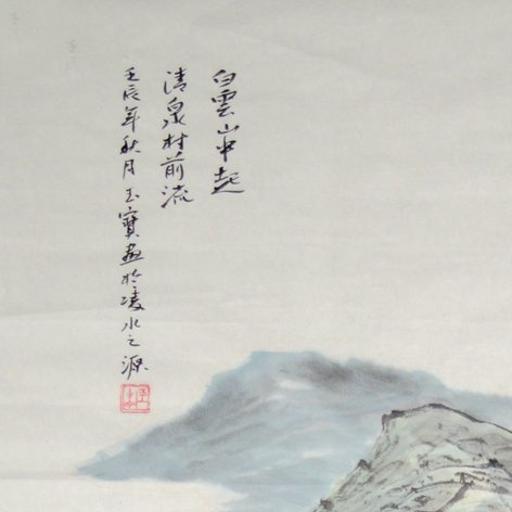 白雲山中起
清泉村前流
壬辰年秋月玉寶畫於凌水之源